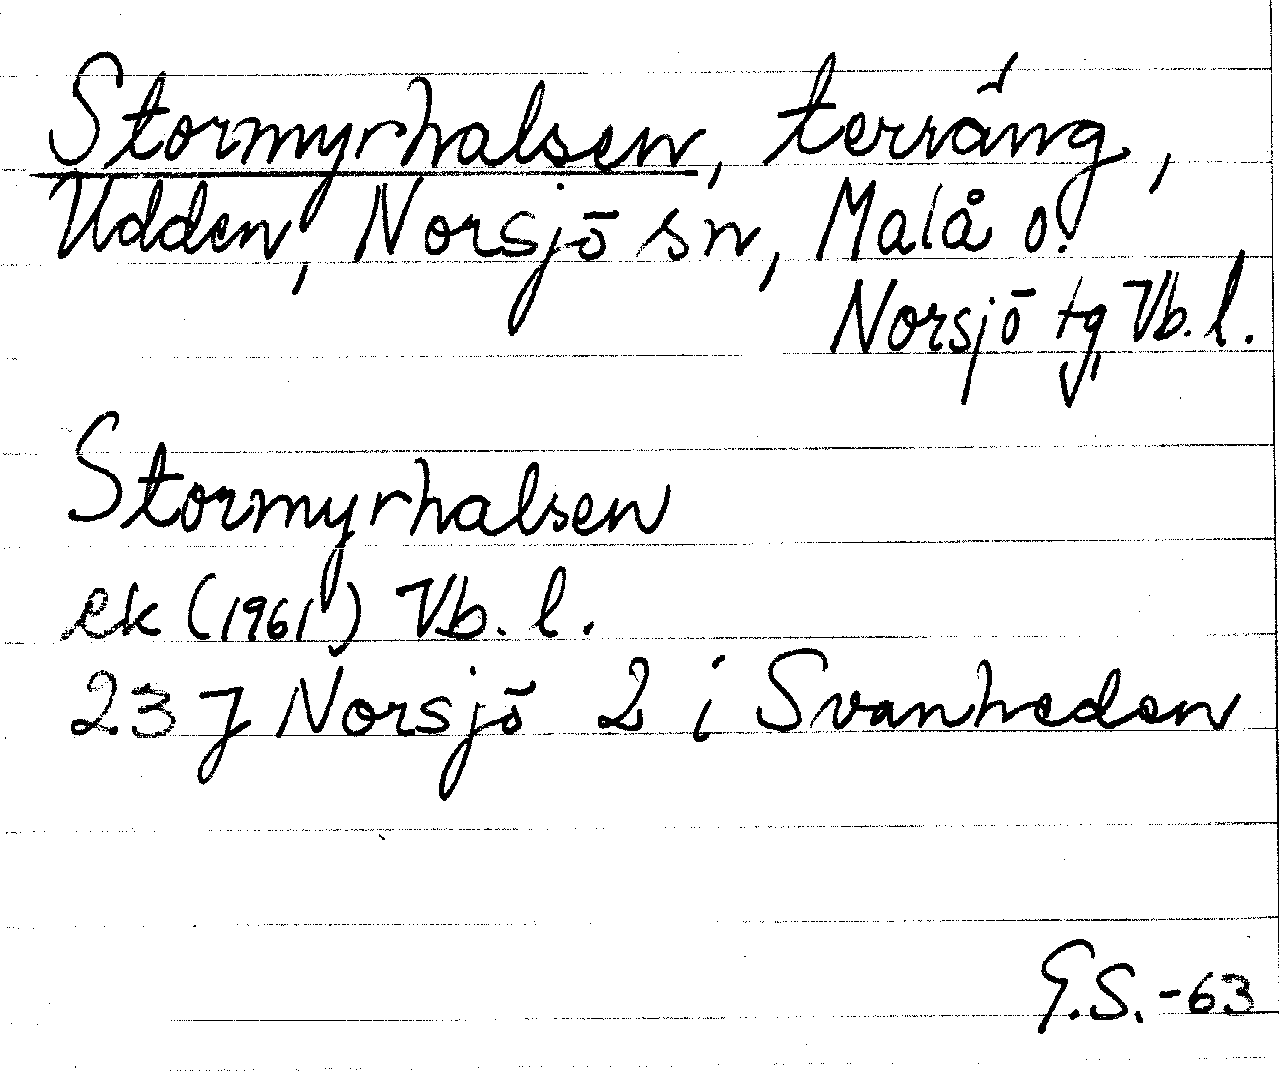 Stormyrhalsen, terräng,
Udden, Norsjö sn, Malå o.
Norsjö tg, Vb. l.
Stormyrhalsen
ek (1961) Vb. l.
23 J Norsjö 2 i Svanheden
G.S. -63